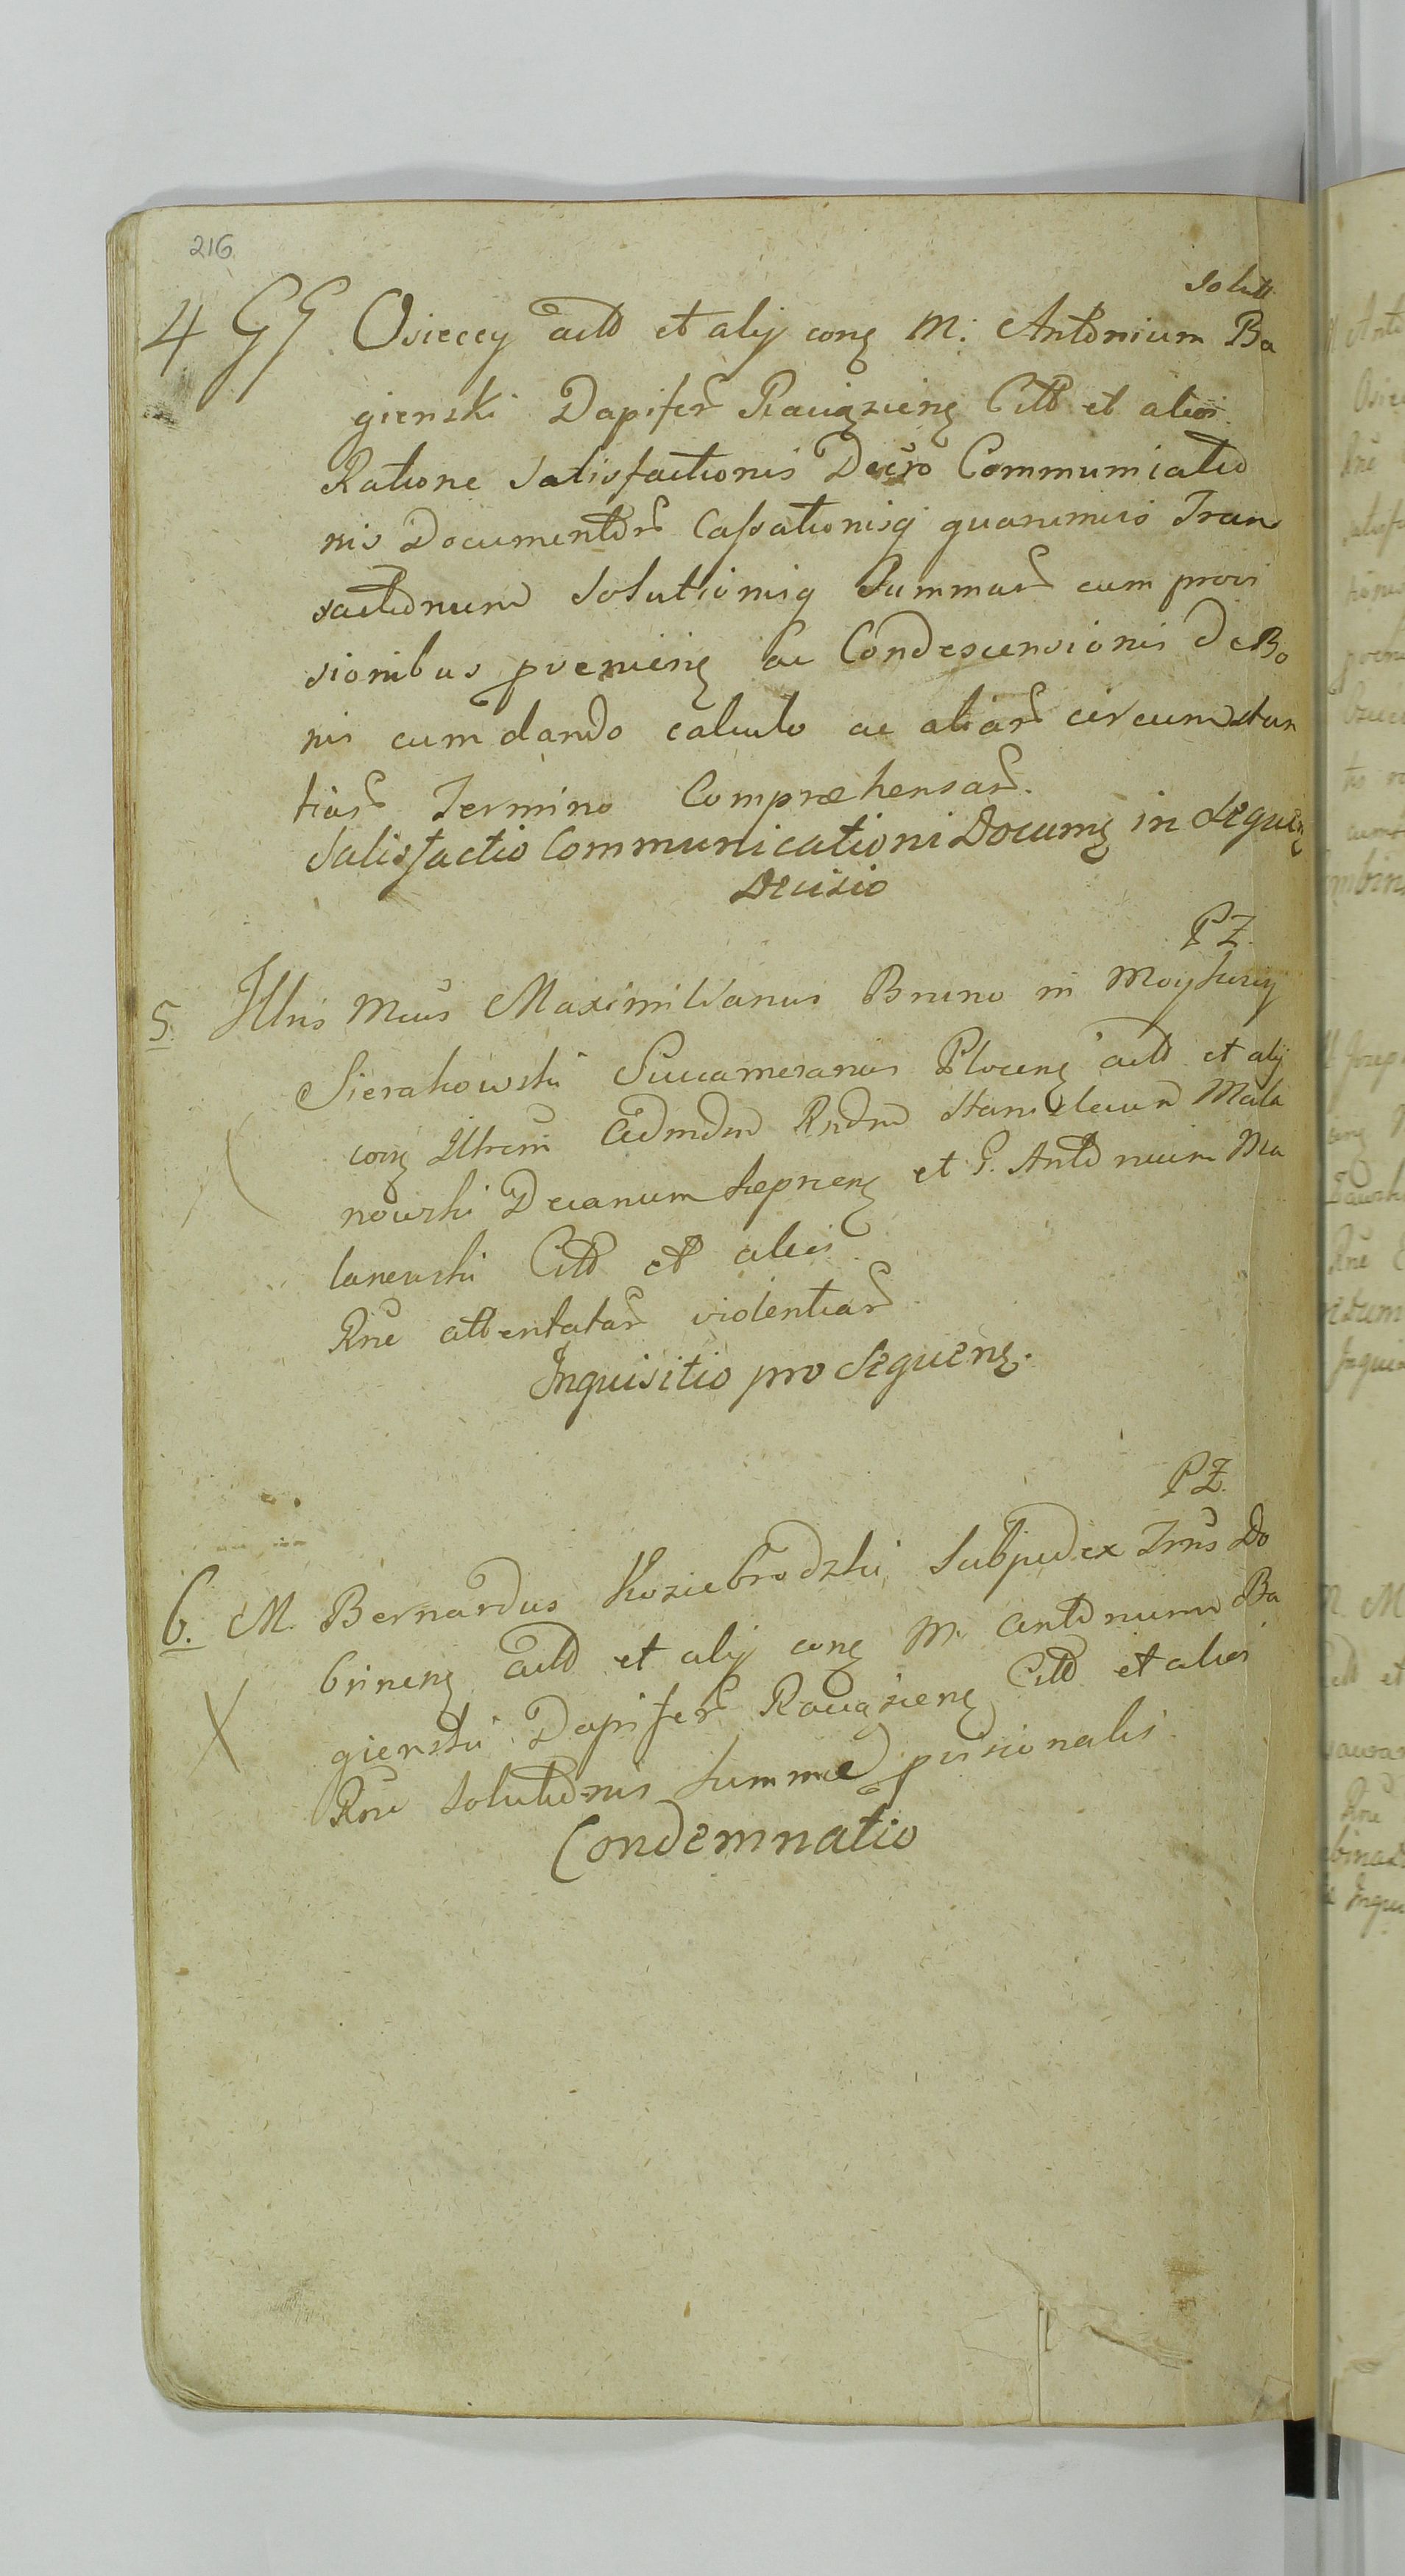 216
Solutt
4 GG Osieccy actt et alij cong M: Antonium Ba
gienski Dapifer Raciązieng Citt et alios
Ratione Satisfactionis Decro Communicatio
nis Documentor Cassationisq quarumvis Tran
sactionum Solutionisq Summar cum provi
sionibus proveniens ac Condescensionis de Bo
nis cum dando calculo ac aliar circumstan
tiar Termino Comprehensar.
Satisfactio Communicationi Documg in Sequeng
Decisio
PZ.
5. Illris Mcus Maximilianus Bruno in Moyhury
Sierakowski Succamerarius Ploceng actt et alij
cong Illrem Admdm Rndm Stanislaum Mala
nowski Decanum Lepneng et G. Antonium Ma
lanewski Citt et alios
Rne attentatar violentiar
Inquisitio pro Sequeng.
PZ.
6. M. Bernardus Koziebrodzki Subjudex Trrus Do
brineng actt et alij cong M. Antonium Ba
gienski Dapifer Raciązieng Citt et alios
Rne Solutionis Summæ provisionalis.
Condemnatio